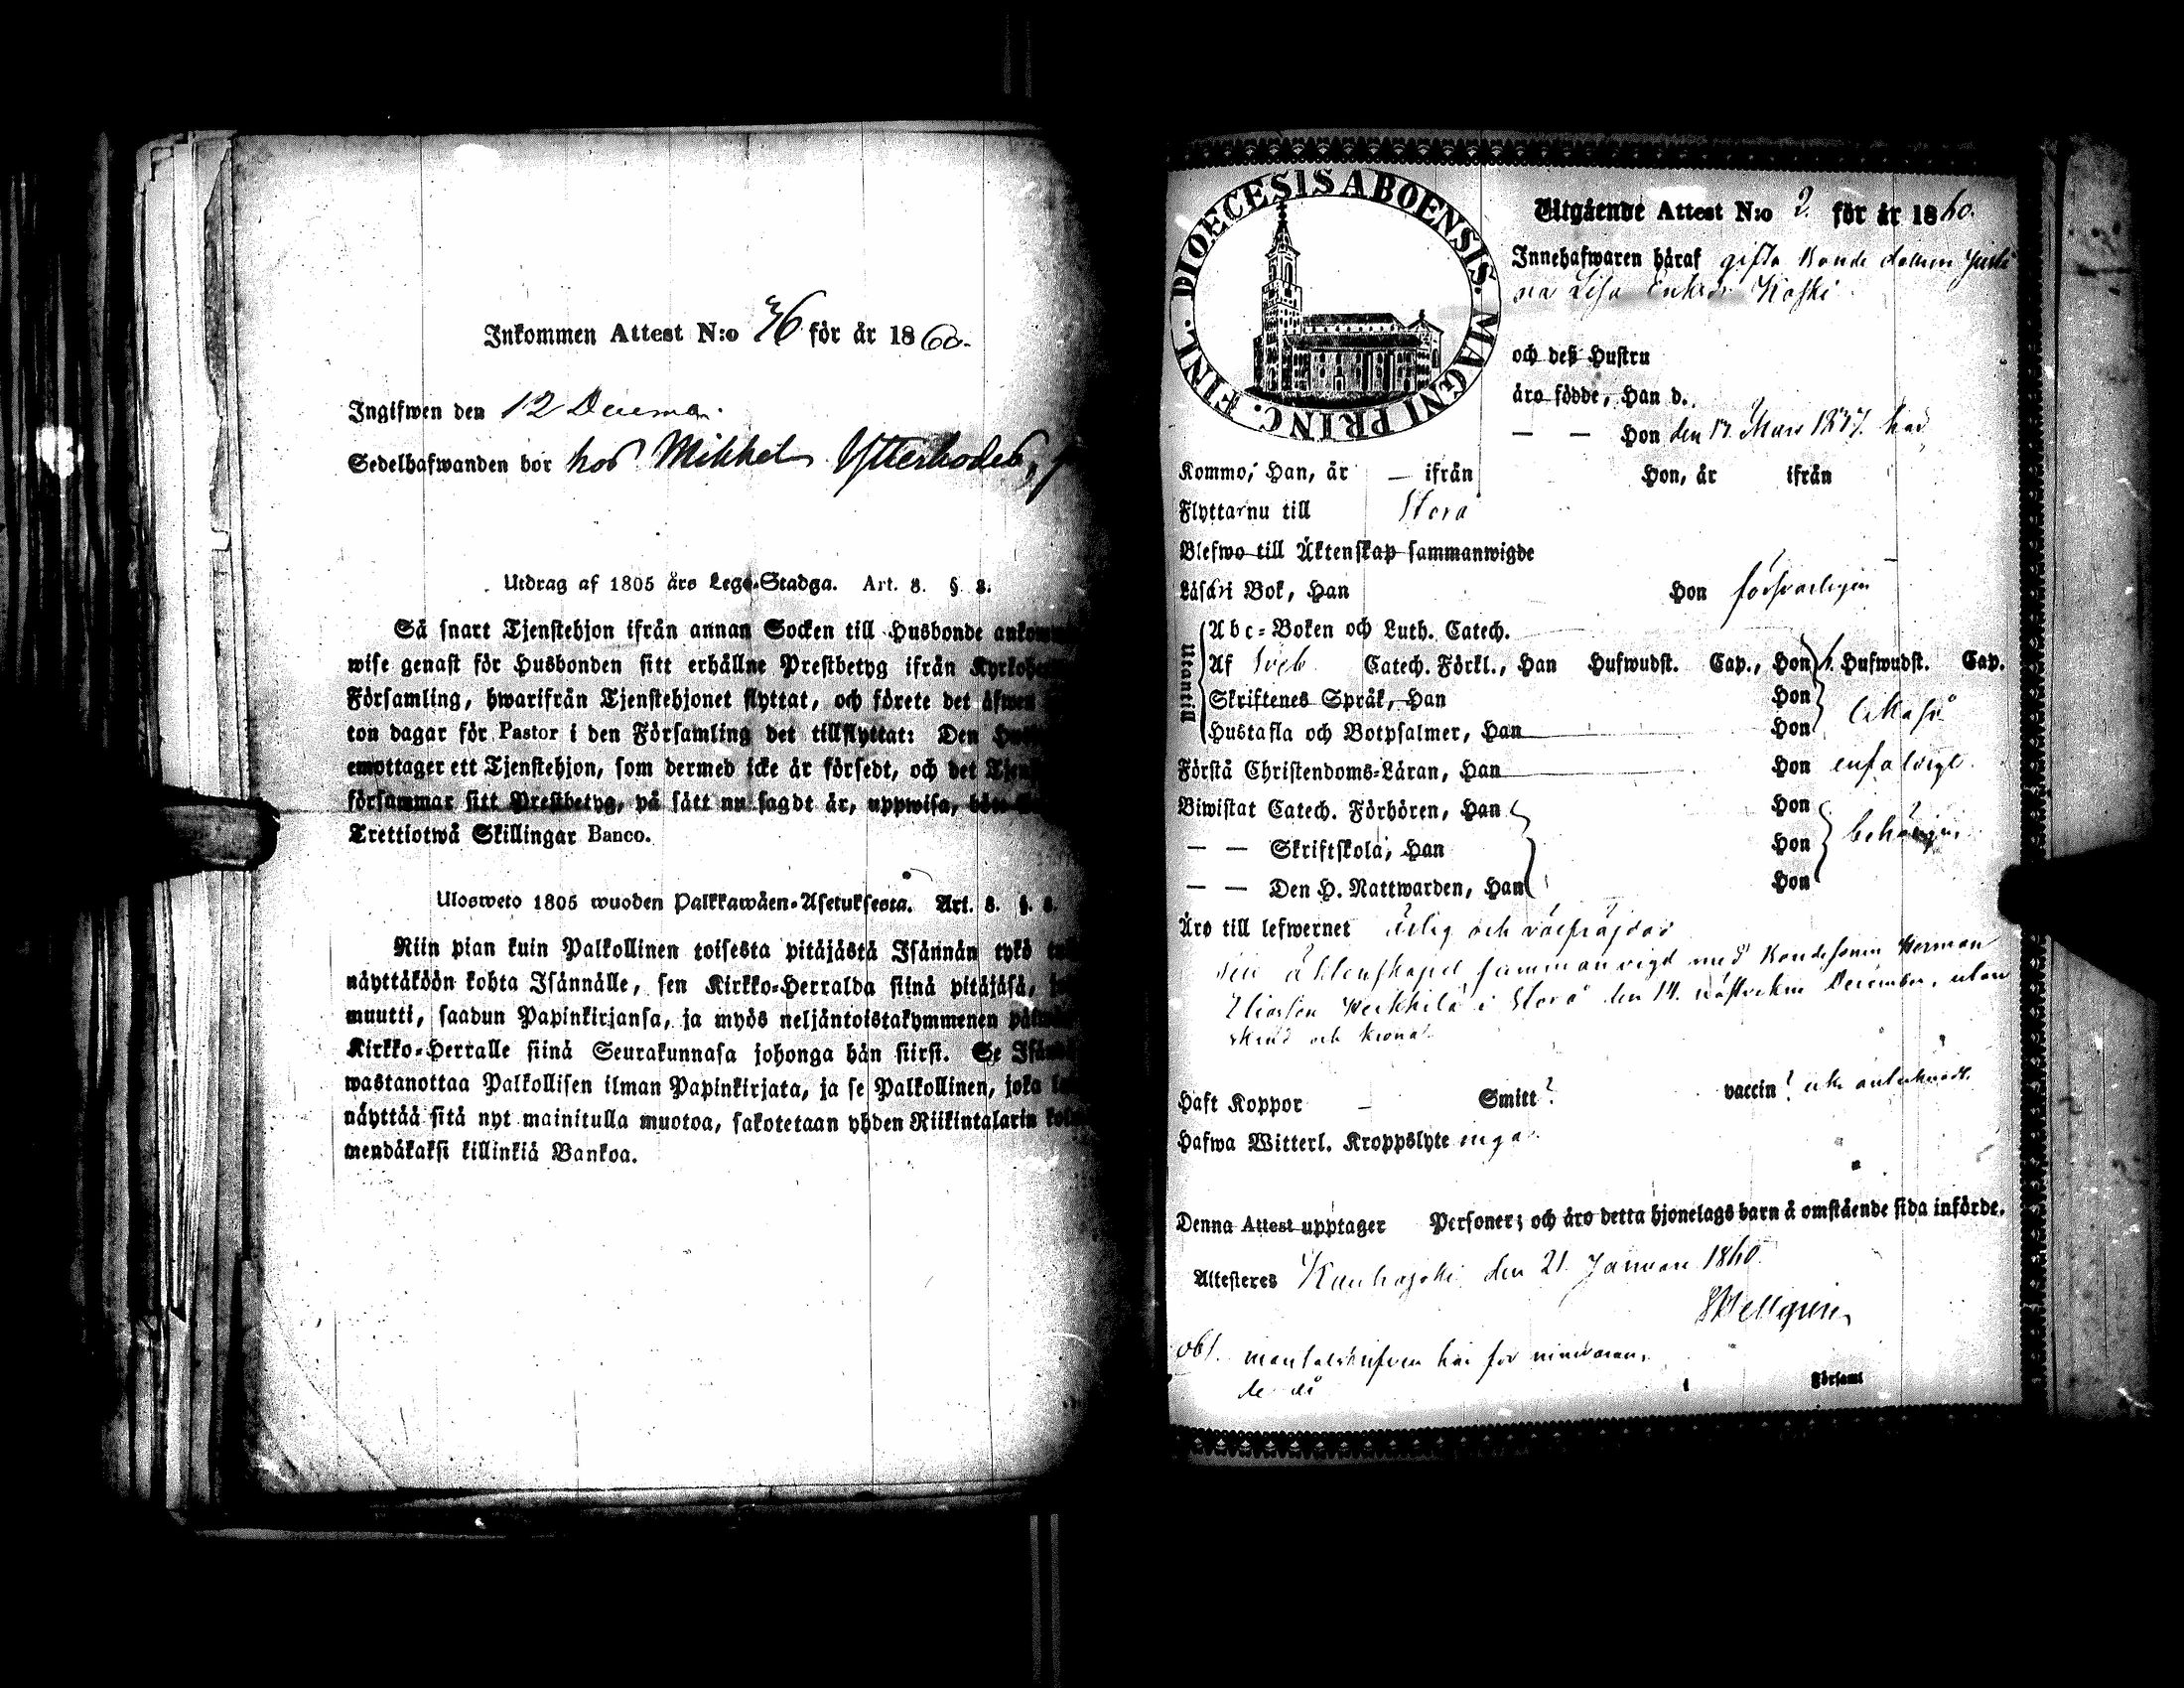 Inkommen Attest N:o 36 för år 1860.
Ingifwen den 12 Decemb.
Sedelhafwanden bor hos Mikkel Ytterhodes,
Utdrag af 1805 års Lego-Stadga. Art. 8. § 8.
Så snart Tjenstehjon ifrån annan Socken till Husbonde
wise genast för Husbonden sitt erhållne Prestbetyg ifrån
Församling, hwarifrån Tjenstehjonet flyttat, och förete det äfwen
ton dagar för Pastor i den Församling det tillflyttat: Den
emottager ett Tjenstehjon, som dermed icke är försedt, och det
försummar sitt Prestbetyg, på sätt nu sagdt är, uppwisa,
Trettiotwå Skillingar Banco.
Ulosweto 1805 wuoden Palkkawäen-Asetuksesta. Art. 8. §. 8.
Niin pian kuin Palkollinen toisesta pitäjästä Isännän tykö
näyttäköön kohta Isännälle, sen Kirkko-Herralda siinä pitäjäsä,
muutti, saadun Papinkirjansa, ja myös neljäntoistakymmenen
Kirkko-Herralle siinä Seurakunnasa johonga hän siirsi. Se
wastanottaa Palkollisen ilman Papinkirjata, ja se Palkollinen, joka
näyttää sitä nyt mainitulla muotoa, sakotetaan yhden Riikintalarin
mendäkaksi killinkiä Bankoa.
DIOECESIS ABOENSIS. MAGNI PRINC. FINL.
Utgående Attest N:o 2. för år 1860.
Innehafwaren häraf gifta Bonde dottren
Lisa Koski
och deß Hustru
äro födde, Han d.
— — Hon den 17. Mars 1837. här
Kommo, Han, år — ifrån Hon, år ifrån
Flyttar nu till Storå
Blefwo till Äktenskap sammanwigde
Läsa i Bok, Han Hon försvarligen
Utantill
Abc-Boken och Luth. Catech.
Af Sveb. Catech. Förkl., Han Hufwudst. Cap., Hon Hufwudst. Cap.
Skriftenes Språk, Han Hon
Hustafla och Botpsalmer, Han Hon likaså
Förstå Christendoms-Läran, Han Hon enfaldigt
Biwistat Catech. Förhören, Han Hon
— — Skriftskola, Han Hon behörigen
— — Den H. Nattwarden, Han Hon
Äro till lefwernet ärlig och välfräjdad
äktenskapet sammanvigd med Bondesonen Herman
Eliasson Heikkilä i Storå den 14. nästvekne December, utan
brud och krona.
Haft Koppor — Smitt? vaccin? icke antecknadt.
Hafwa Witterl. Kroppslyte inga.
Denna Attest upptager Personer; och äro detta hjonelags barn å omstående sida införde.
Attesteres Kauhajoki den 21. Januari 1860.
Hellgren
obs. mantalskrifven här för
Församl